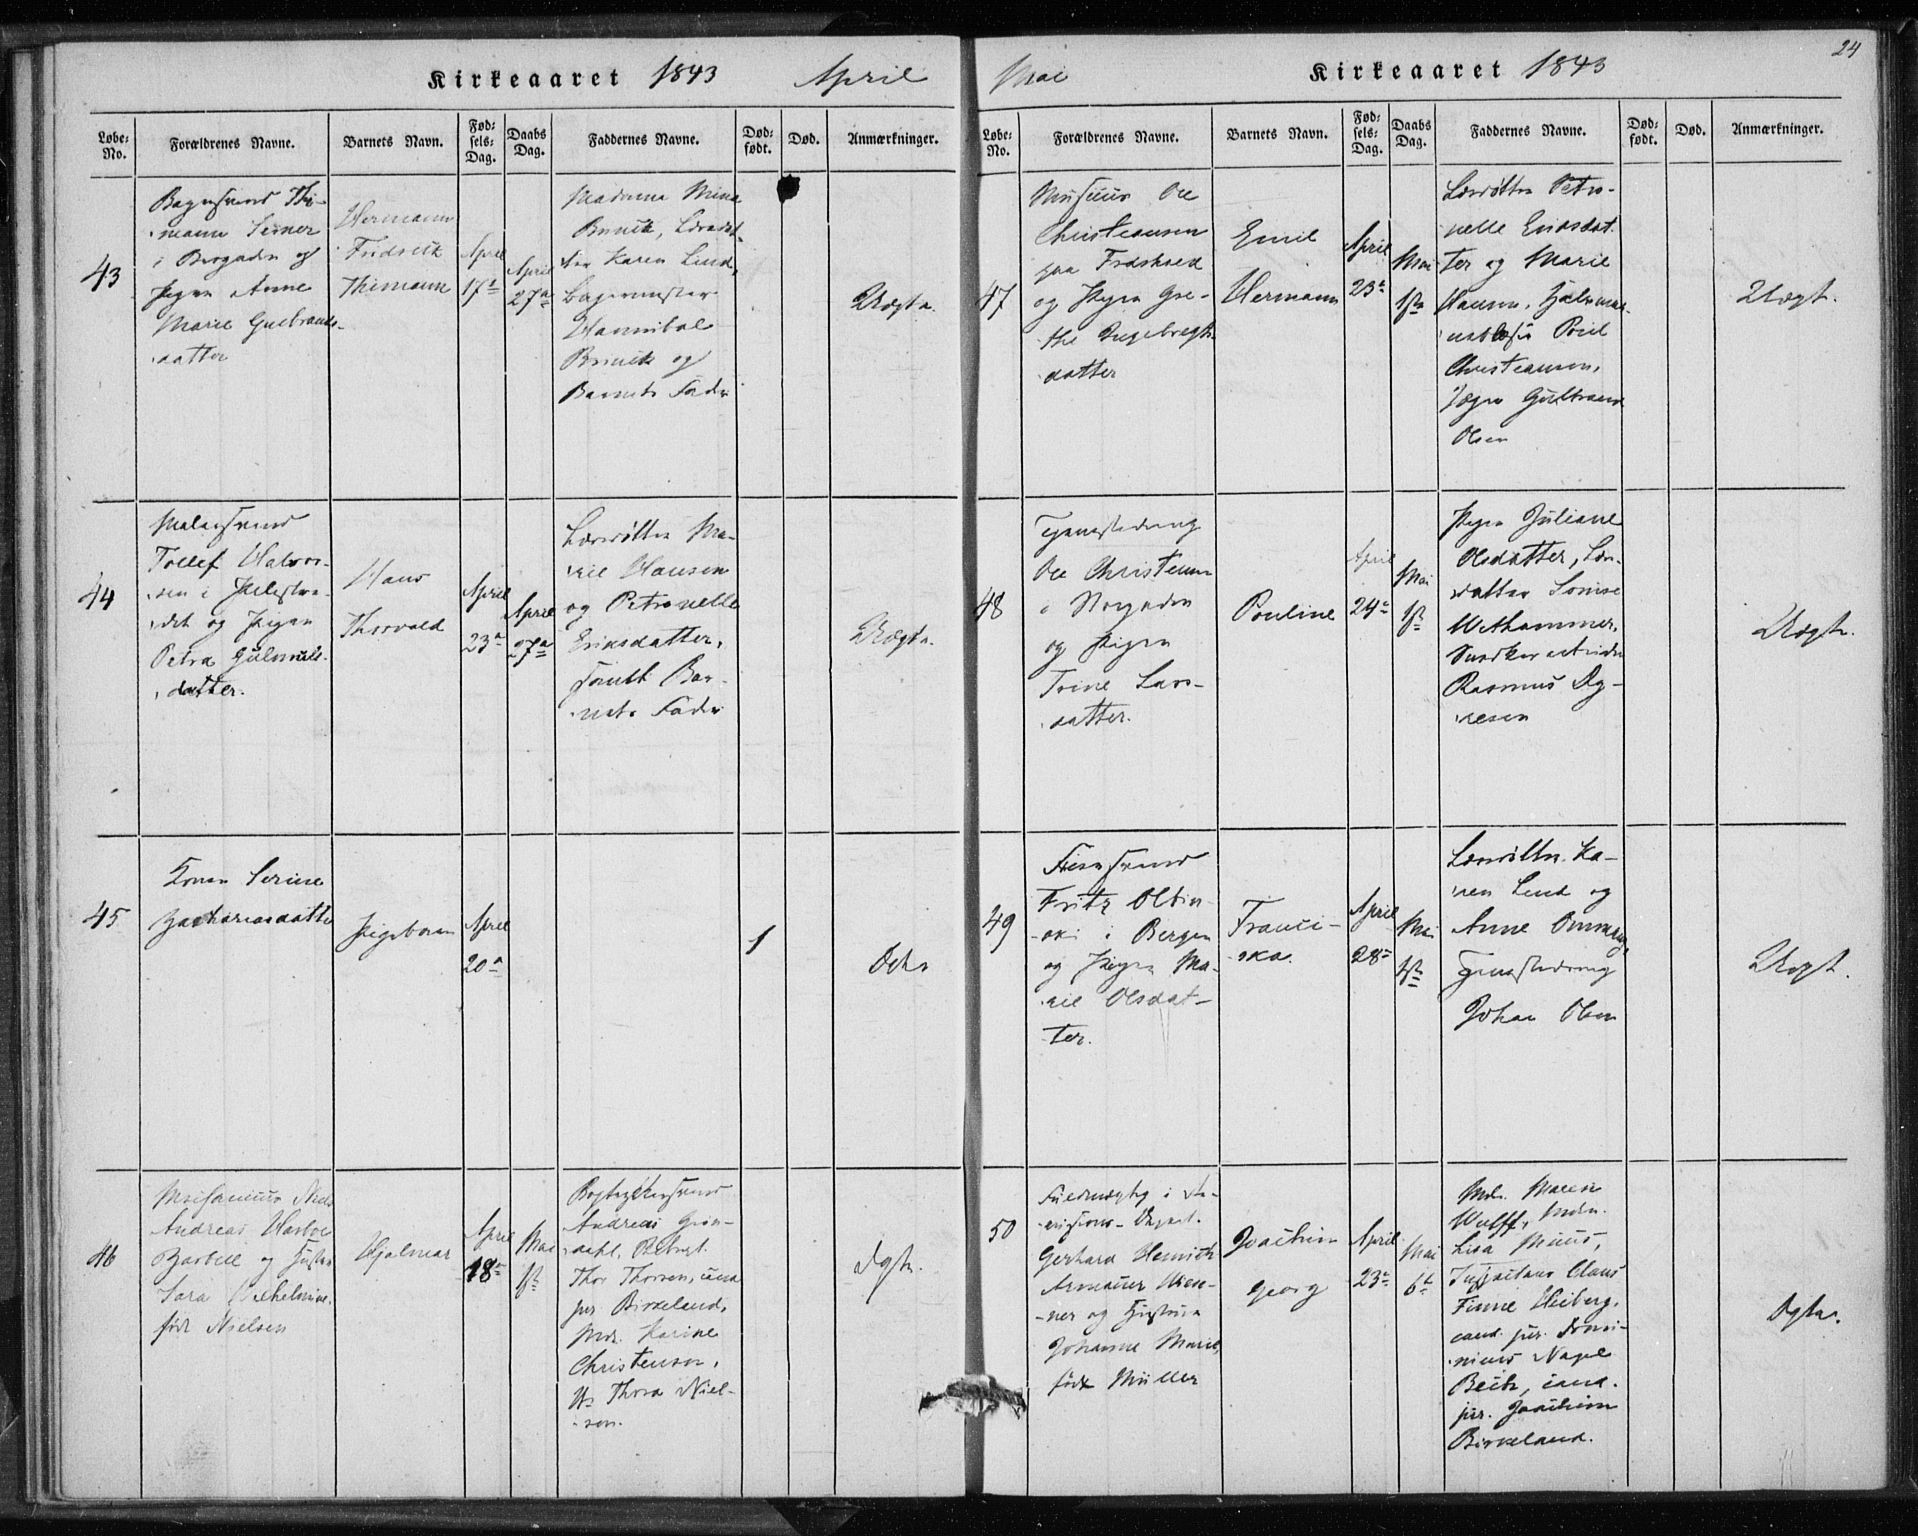 Kirkeaaret 1843 April
Løbe-No. Forældrenes Navne. Barnets Navn. Fødsels-Dag. Daabs Dag. Faddernes Navne. Dødfødt. Død. Anmærkninger.
43
Bagersvend Thi-
mann Serner
i Brogaden og
Pigen Anne
Marie Gulbrands-
datter
Hermann
Fridrich
Thimann
April
17de
April
27de
Madame Mina
Brinck, Læredat-
ter Karen Lind,
Bagermester
Hannibal
Brinck og
Barnets Fader
Uægte.
44
Malersvend
Tollef Halvor-
sen i Pilestræ-
det og Pigen
Petra Gulmuls-
datter.
Hans
Thorvald
April
23de
April
27de
Læredøttre Ma-
rie Hansen
og Petronelle
Eriksdatter,
samt Bar-
nets Fader
Uægte.
45
Konen Serine
Zachariasdatter
Pigebarn
April
20de
1
Ægte
46
Andreas Harboe
Barbell og Hustru
Sara Wilhelmine,
født Nielsen
Hjalmar
April
18de
Mai
1ste
Bogtrykkersvend
Andreas Grøn-
dahl,
Thor Thorsen, cand.
jur. Birkeland,
Md. Karine
Christensen,
Thora Niel-
sen.
Ægte.
24
Mai Kirkeaaret 1843
Løbe-No. Forældrenes Navne. Barnets Navn. Fødsels-Dag. Daabs Dag. Faddernes Navne. Dødfødt. Død. Anmærkninger.
47
Musicus Ole
Christiansen
paa
og Pigen Gre-
the Ingebregts-
datter
Emil
Hermann
April
23de
Mai
1ste
Læredøttre Petro-
nelle Eriksdat-
ter og Marie
Hansen,
Poul
Christiansen,
Gulbrand
Olsen
Uægte.
48
Tjenestedreng
Ole Christensen
i Storgaden
og Pigen
Trine Lars-
datter.
Pouline
April
24de
Mai
1ste
Pigen Juliane
Olsdatter, Lære-
datter Lovise
Wethammer,
Snedkerarbeider
Rasmus Ag-
nesen
Uægte.
49
Fritz Olbin-
ski i Bergen
og Pigen Ma-
rie Olsdat-
ter.
Franci-
ska.
April
28de
Mai
1ste
Læredøttre Ka-
ren Lind og
Anne Ommang,
Tjenestedreng
Johan Olsen
Uægt.
50
Fuldmægtig i Re-
visions-Depart.
Gerhard Henrich
Armauer Wien-
ner og Hustru
Johanne Marie,
født Müller
Joachim
Georg
April
23de
Mai
6te
Md. Maren
Wulff, Mdm.
Lisa Muus,
Claus
Finne Heiberg,
cand. jur. Domi-
nicus Nagel
Beck, cand.
jur. Joachim
Birkeland.
Ægte.